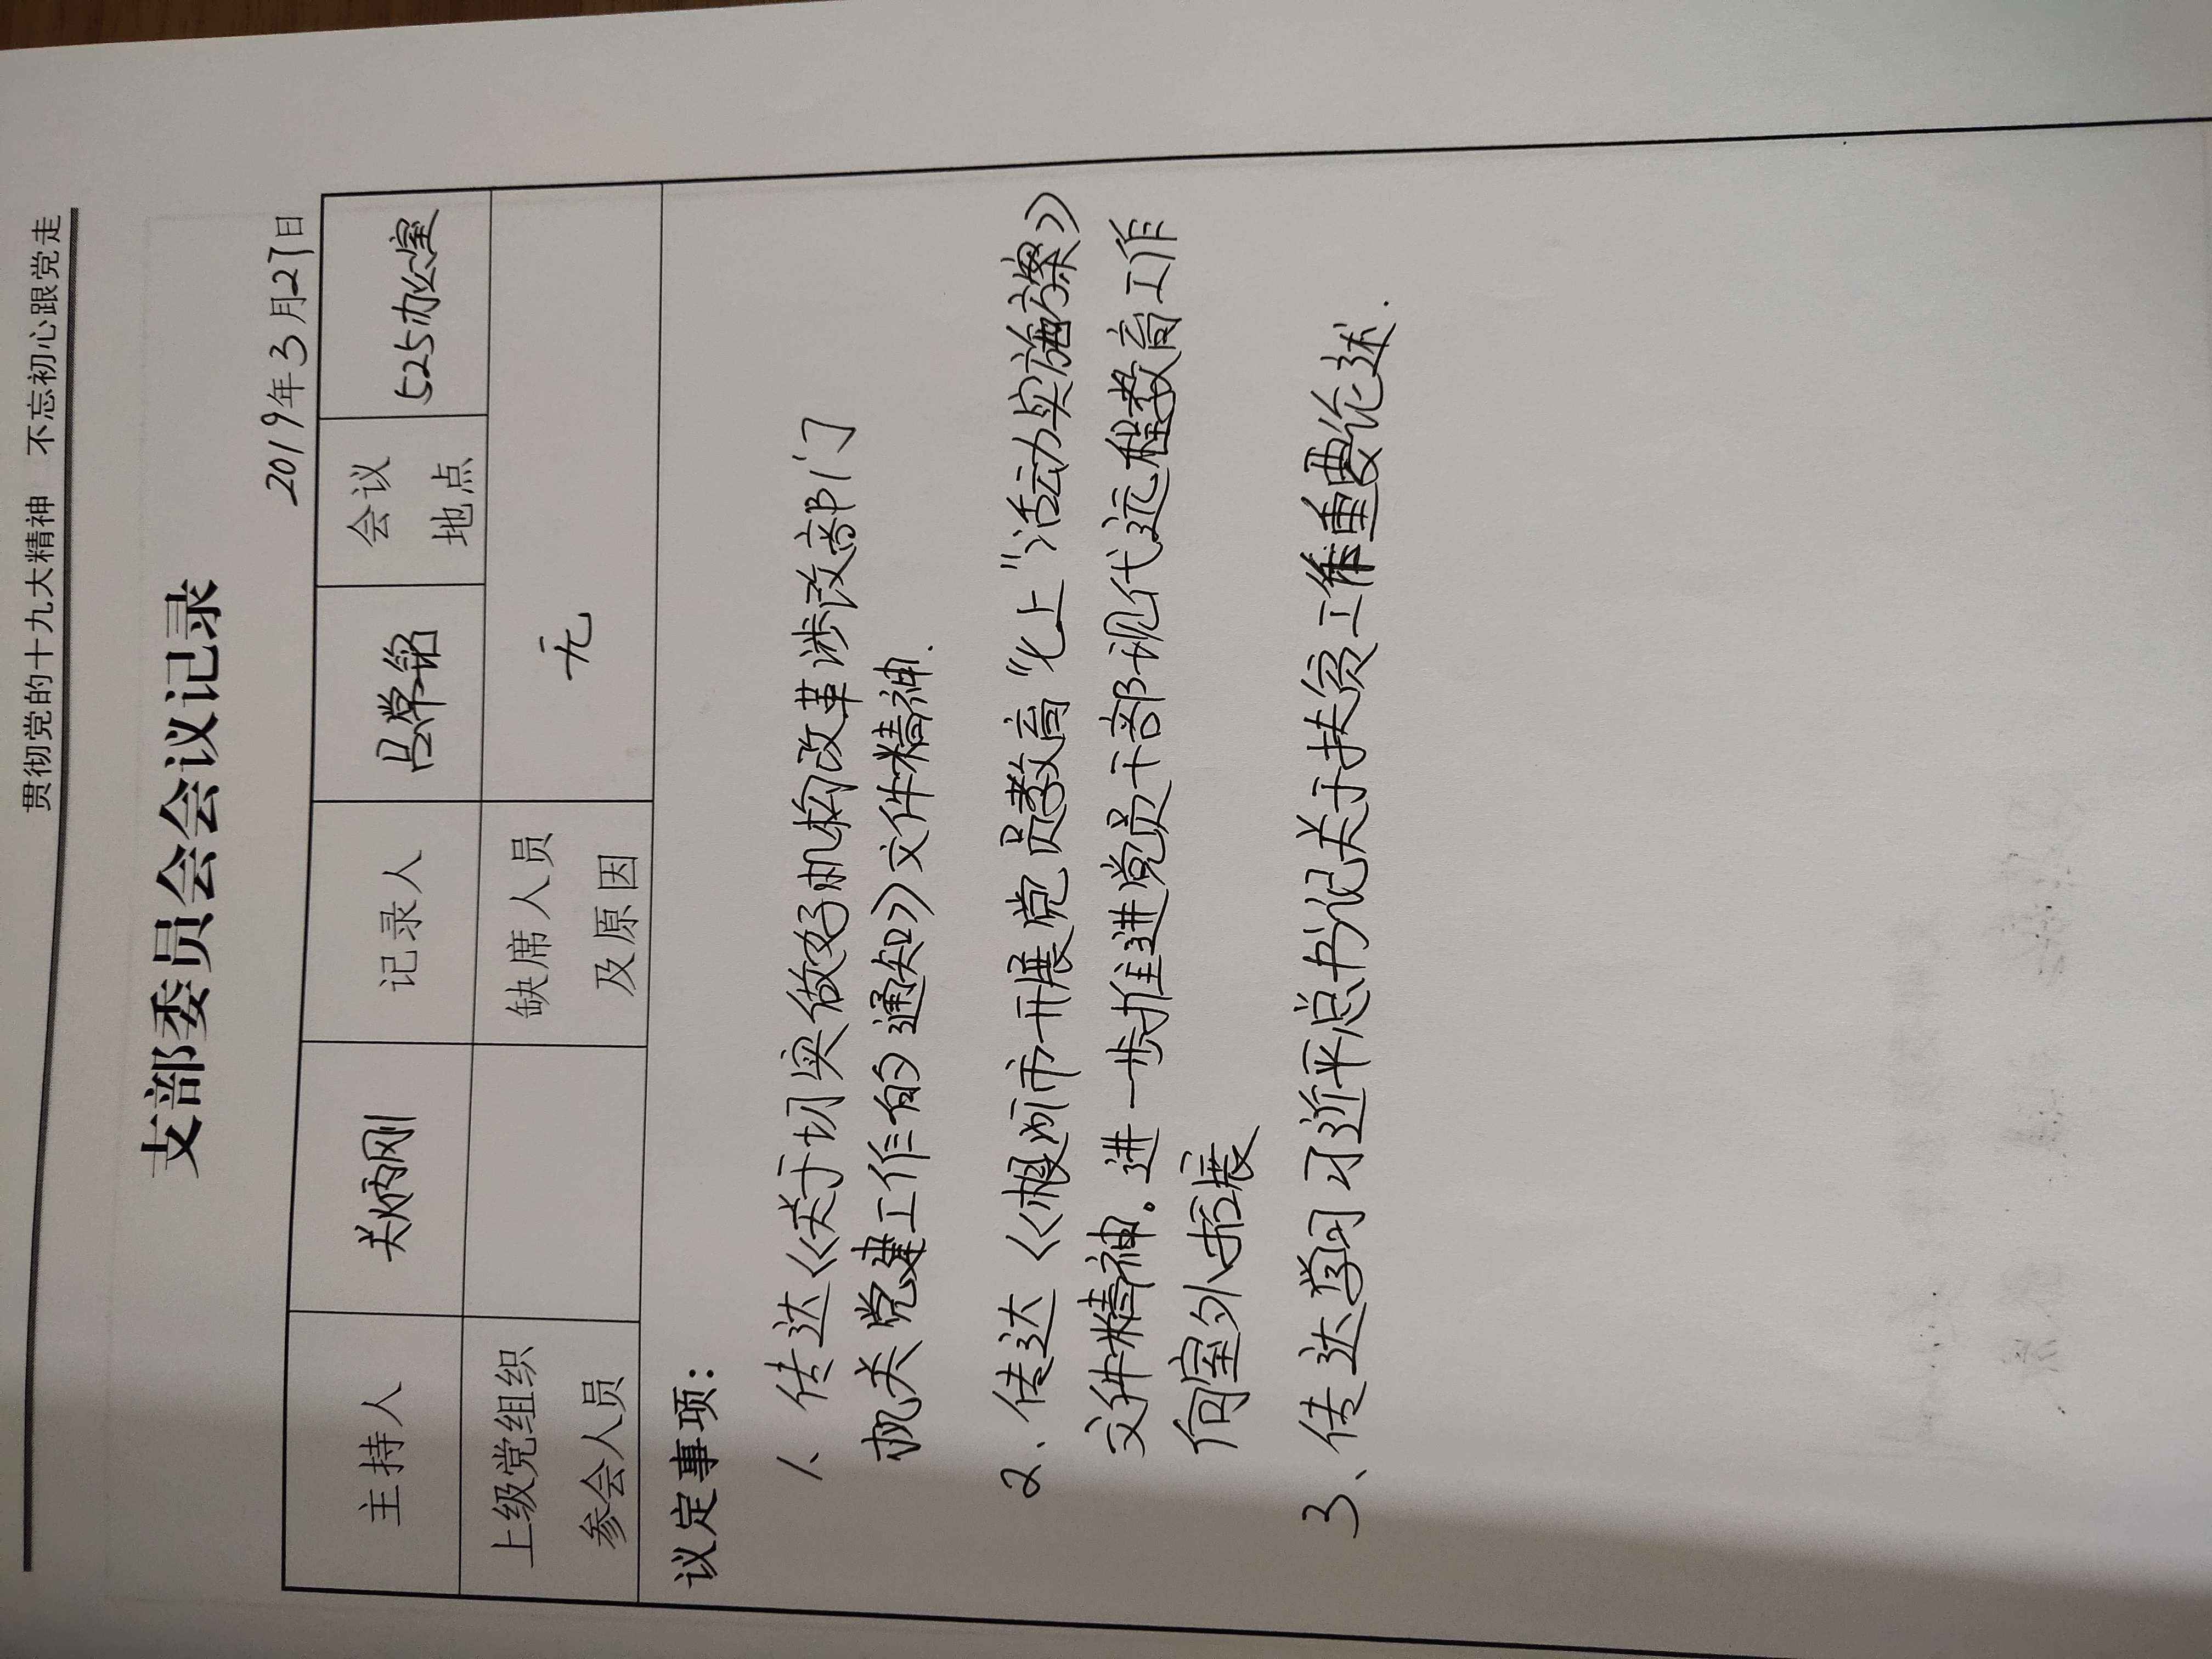 贯彻党的十九大精神 不忘初心跟党走
支部委员会会议记录
2019年3月27日
主持人 关炳刚 记录人 吕学铭 会议地点 525办公室
上级党组织参会人员 缺席人员及原因 无
议定事项：
1、传达《关于切实做好机构改革涉改部门
机关党建工作的通知》文件精神.
2、传达《根河市开展党员教育“七上”活动实施方案》
文件精神。进一步推进党员干部现代远程教育工作
向室外拓展
3、传达学习习近平总书记关于扶贫工作重要论述.